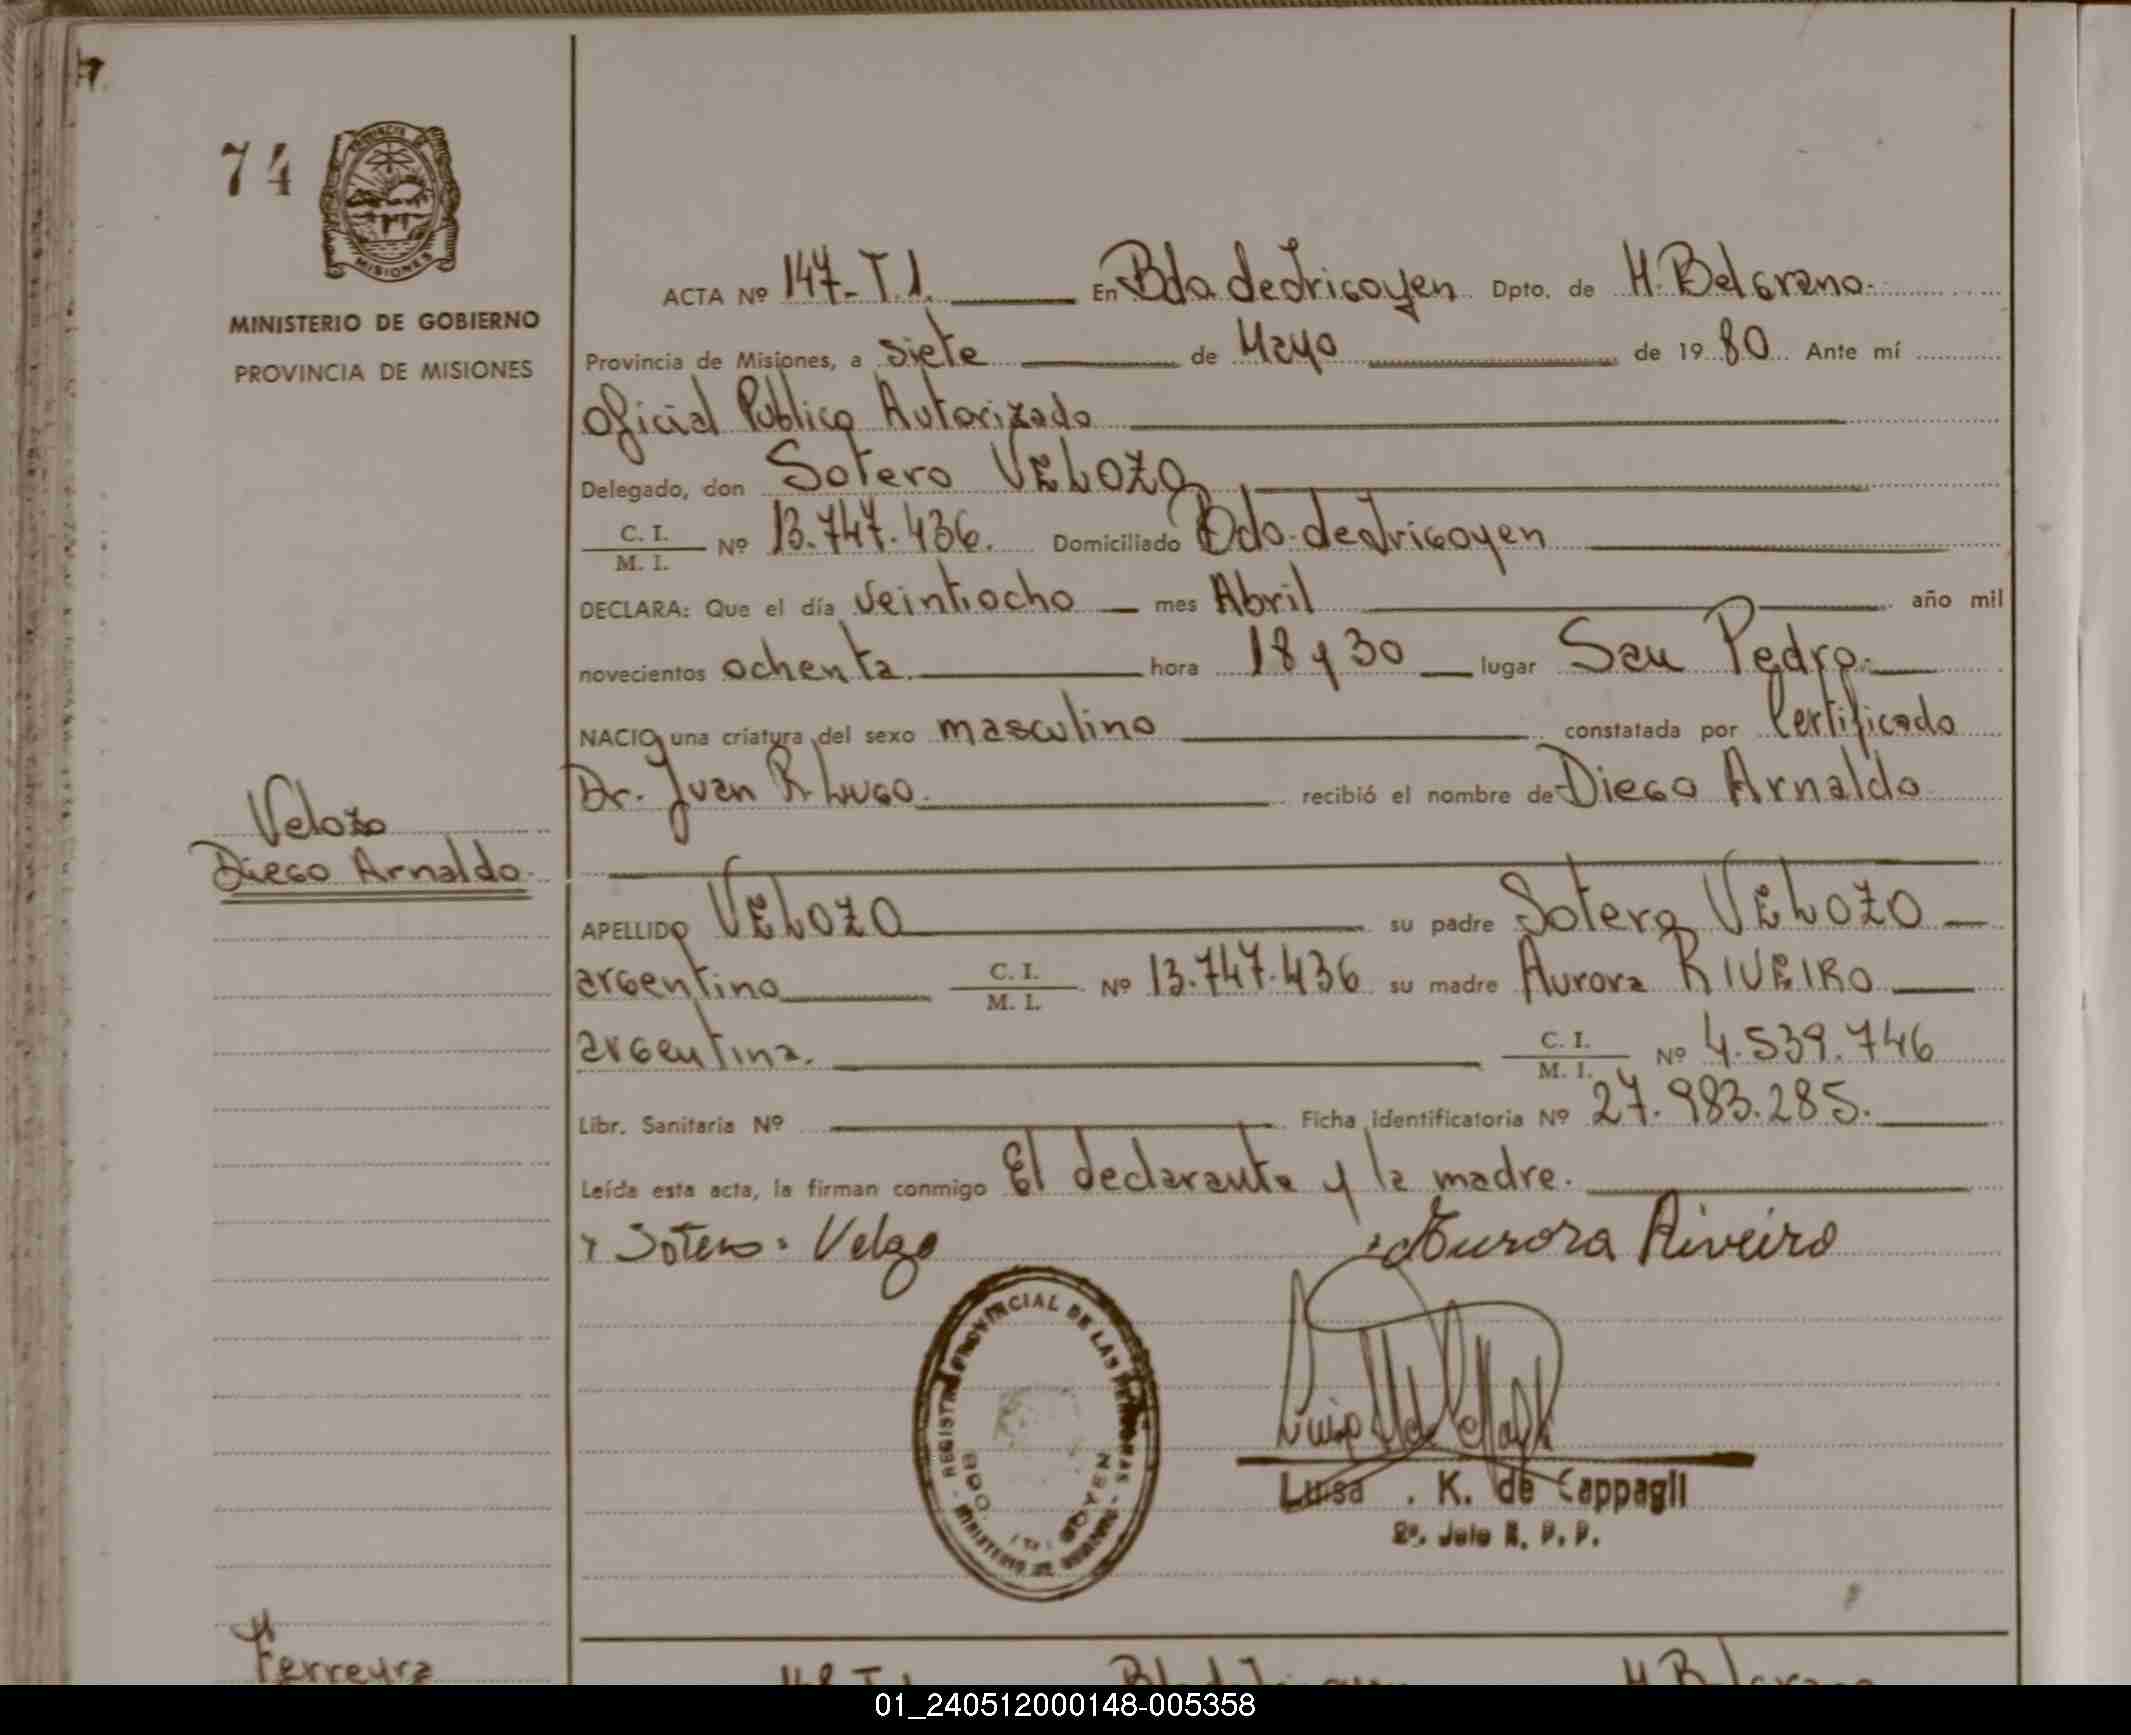 74
PROVINCIA DE
MISIONES
MINISTERIO DE GOBIERNO
PROVINCIA DE MISIONES
ACTA Nº 147-T.1. En Bdo. de Irigoyen Dpto. de M. Belgrano.
Provincia de Misiones, a siete de Mayo de 1980 Ante mí
Oficial Público Autorizado
Delegado, don Sotero VELOZO
C. I. / M. I. Nº 13.747.436. Domiciliado Bdo. de Irigoyen
DECLARA: Que el día veintiocho mes Abril año mil
novecientos ochenta. hora 18 y 30 lugar San Pedro.
NACIO una criatura del sexo masculino constatada por Certificado
Dr. Juan R. Lugo. recibió el nombre de Diego Arnaldo
Velozo
Diego Arnaldo.
APELLIDO VELOZO su padre Sotero VELOZO
argentino C. I. / M. I. Nº 13.747.436 su madre Aurora RIVEIRO
argentina. C. I. / M. I. Nº 4.539.746
Libr. Sanitaria Nº Ficha identificatoria Nº 27.983.285.
Leída esta acta, la firman conmigo El declarante y la madre.
Sotero Velozo
Aurora Riveiro
REGISTRO PROVINCIAL DE LAS PERSONAS
MINISTERIO DE GOBIERNO
BDO. IRIGOYEN
Luisa . K. de Cappagli
2º. Jefe R. P. P.
Ferreyra
01_240512000148-005358